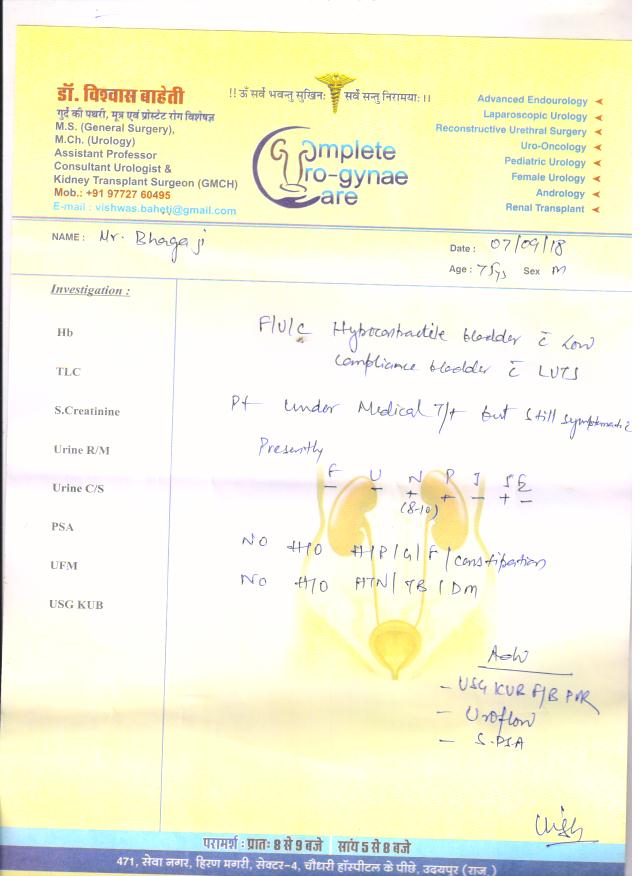 !! ॐ सर्वे भवन्तु सुखिनः सर्वे सन्तु निरामयाः !!
डॉ. विश्वास बाहेती
गुर्दे की पथरी, मूत्र एवं प्रोस्टेट रोग विशेषज्ञ
M.S. (General Surgery),
M.Ch. (Urology)
Assistant Professor
Consultant Urologist &
Kidney Transplant Surgeon (GMCH)
Mob.: +91 97727 60495
E-mail : vishwas.baheti@gmail.com
Complete
Uro-gynae
Care
Advanced Endourology
Laparoscopic Urology
Reconstructive Urethral Surgery
Uro-Oncology
Pediatric Urology
Female Urology
Andrology
Renal Transplant
NAME : Mr. Bhagaji
Date : 07/09/18
Age : 75ys Sex M
Investigation :
Hb
TLC
S.Creatinine
Urine R/M
Urine C/S
PSA
UFM
USG KUB
F/U/C Hypocontractile bladder c̄ Low
Compliance bladder c̄ LUTS
Pt under Medical T/t but still symptomatic
Presently
F U N P I S E
- - + + - + -
(8-10)
NO H/O H/P/G/F/constipation
NO H/O HTN/TB/DM
Adv
- USG KUB F/B PVR
- Uroflow
- S.PSA
परामर्श : प्रातः 8 से 9 बजे सांय 5 से 8 बजे
471, सेवा नगर, हिरण मगरी, सेक्टर-4, चौधरी हॉस्पीटल के पीछे, उदयपुर (राज.)